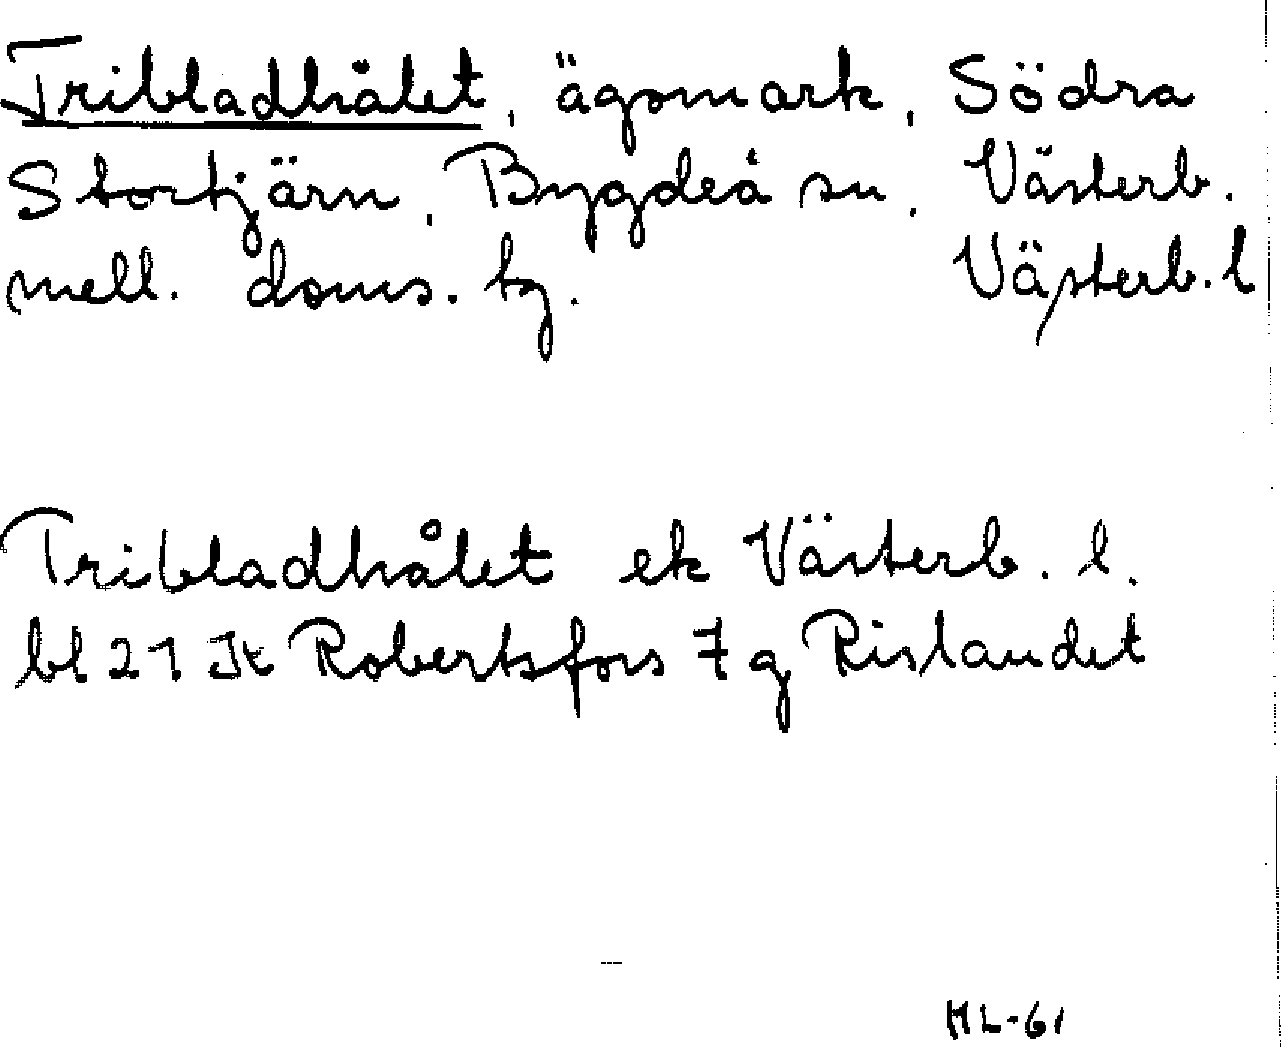 Tribladhålet, ägomark, Södra
Stortjärn, Bygdeå sn, Västerb.
mell. doms. tg. Västerb. l
Tribladhålet ek Västerb. l.
bl 21 Jt Robertsfors 7 g Rislandet
ML-61